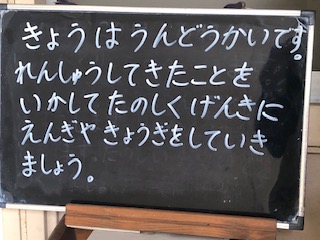 きょうはうんどうかいです。
れんしゅうしてきたことを
いかしてたのしくげんきに
えんぎやきょうぎをしていき
ましょう。